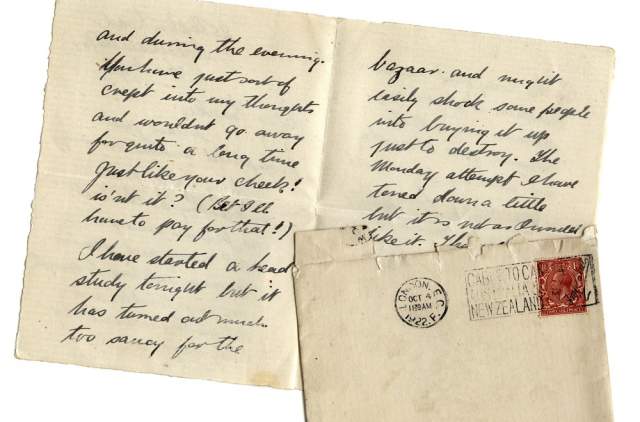 and during the evening.
You have just sort of
crept into my thoughts
and wouldnt go away
for quite a long time
Just like your cheek!
isn't it? (Bet I'll
have to pay for that!)
I have started a head
study tonight but it
has turned out much
too saucy for the
bazaar. and might
easily shock some people
into buying it up
just to destroy. The
Monday attempt I have
toned down a little
but it is not as I would
like it.
LONDON. E.C.
OCT 4
1922
CABLE TO CA
NEW ZEALAND